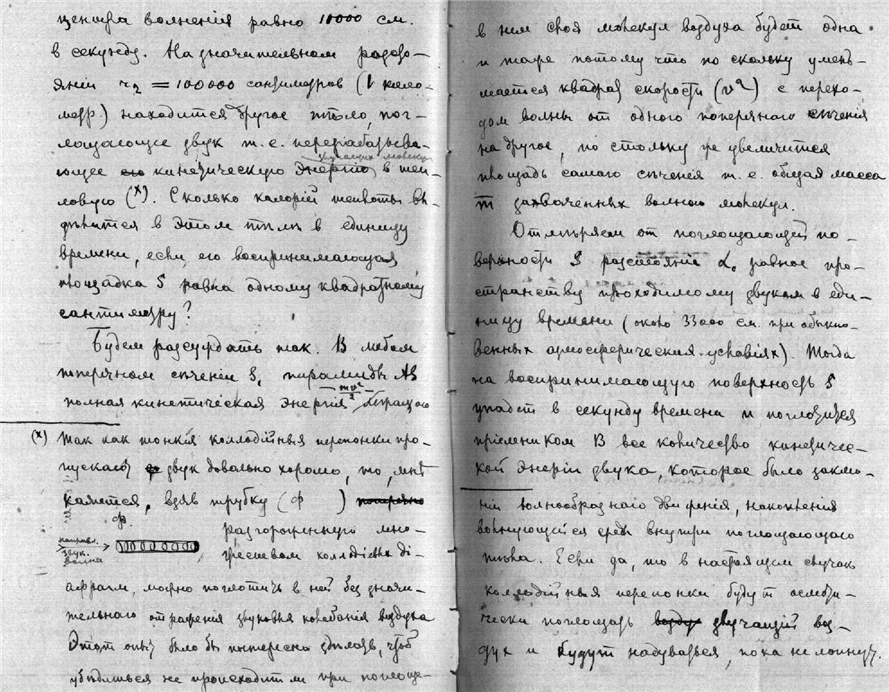 центра волненія равно 10000 см.
в секунду. На значительном разсто-
яніи r₂ = 100000 сантиметров (1 кило-
метр.) находится другое тѣло, пог-
лощающее звук т. е. перерабатыва-
звучащих молекул
ющее его кинетическую энергію в теп-
ловую (x). Сколько калорій теплоты вы-
дѣлится в этом тѣлѣ в единицу
времени, если его воспринимающая
площадка S равна одному квадратному
сантиметру?
Будем разсуждать так. В любом
поперечном сѣченіи S, пирамиды AB
полная кинетическая энергія mv²/2
(x) Так как тонкія коллодійныя перепонки про-
пускают звук довольно хорошо, то, мнѣ
кажется, взяв трубку (ф ) поперечно
ф.
разгороженную мно-
направл.
звук.
волна
жеством коллодіевых ді-
афрагм, можно поглотить в ней без значи-
тельнаго отраженія звуковыя колебанія воздуха
Этот опыт было бы интересно сдѣлать, чтоб
убѣдиться не происходит ли при поглоще-
в нем слоя молекул воздуха будет одна
и та же потому что по скольку умень-
шается квадрат скорости (v²) с перехо-
дом волны от одного поперечнаго сѣченія
на другое, по стольку же увеличится
площадь самого сѣченія т. е. общая масса
m захваченных волною молекул.
Отмѣряем от поглощающей по-
верхности S разстояніе α₀ равное про-
странству проходимому звуком в еди-
ницу времени (около 33000 см. при обыкно-
венных атмосферических условіях). Тогда
на воспринимающую поверхность S
упадет в секунду времени и поглотится
пріемником B все количество кинетичес-
кой энергіи звука, которое было заклю-
ніи волнообразнаго движенія, накопленія
волнующейся среды внутри поглощающаго
тѣла. Если да, то в настоящем случаѣ
коллодійныя перепонки будут осмоти-
чески поглощать воздух звучащій воз-
дух и будут надуваться, пока не лопнут.